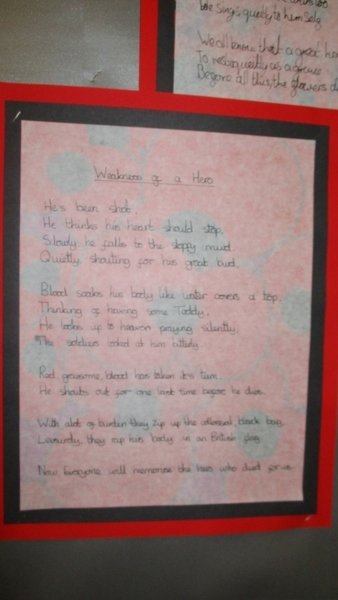 he sings quietly to himself
We all know that a great
To rest quietly as a
Before all this, the flowers
Weakness of a Hero
He's been shot,
He thinks his heart should stop.
Slowly he falls to the sloppy mud.
Quietly, shouting for his great bud.
Blood soaks his body like water covers a top,
Thinking of having some Toddy,
He looks up to heaven praying silently,
The soldiers looked at him utterly.
Red gruesome, blood has taken its turn.
He shouts out for one last time before he dies.
With alot of burden they zip up the black bag.
Leisurely, they rap his body in an British flag.
Now Everyone will memorise the hero who died for us.